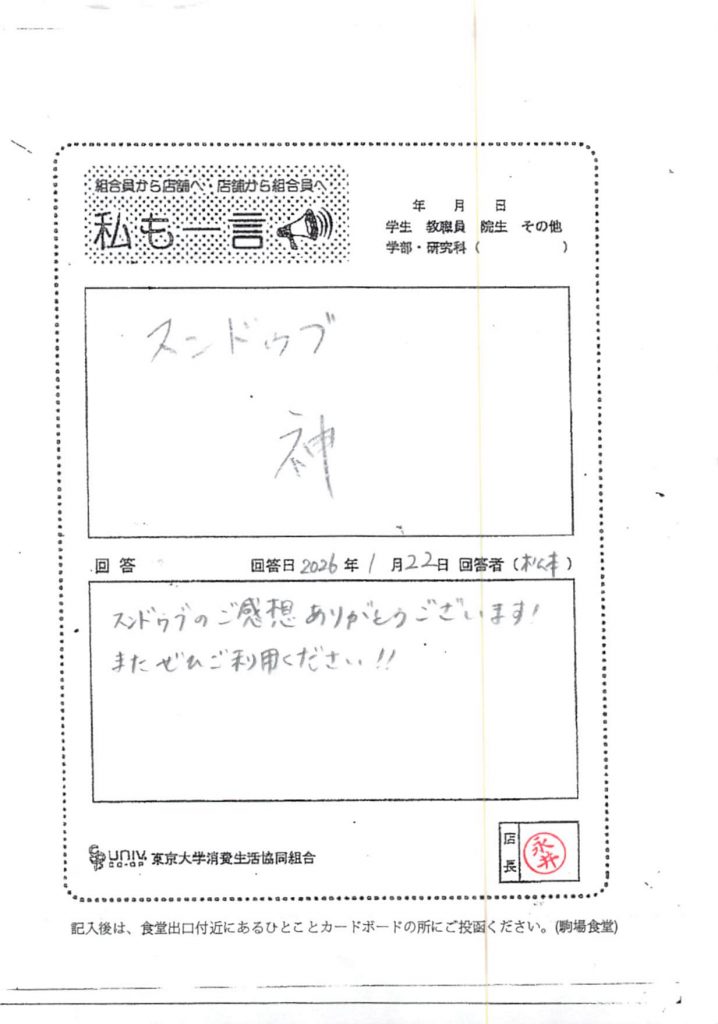 組合員から店舗へ・店舗から組合員へ
私も一言
年 月 日
学生 教職員 院生 その他
学部・研究科（ ）
スンドゥブ
神
回答 回答日 2026年 1月22日 回答者（松本）
スンドゥブのご感想ありがとうございます!
またぜひご利用ください!!
UNIV. CO-OP 東京大学消費生活協同組合
店長 永井
記入後は、食堂出口付近にあるひとことカードボードの所にご投函ください。(駒場食堂)